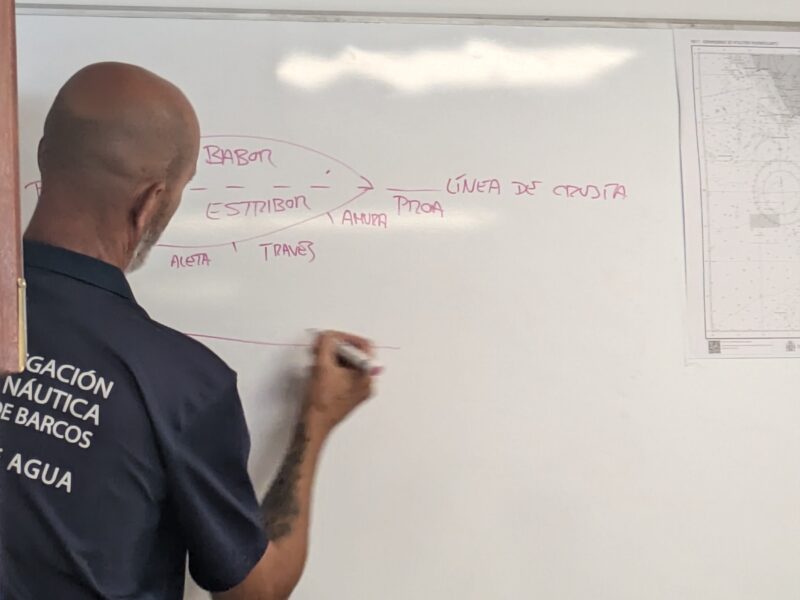 BABOR
LÍNEA DE CRUJÍA
ESTRIBOR
PROA
AMURA
TRAVÉS
ALETA
GACIÓN
NÁUTICA
DE BARCOS
AGUA